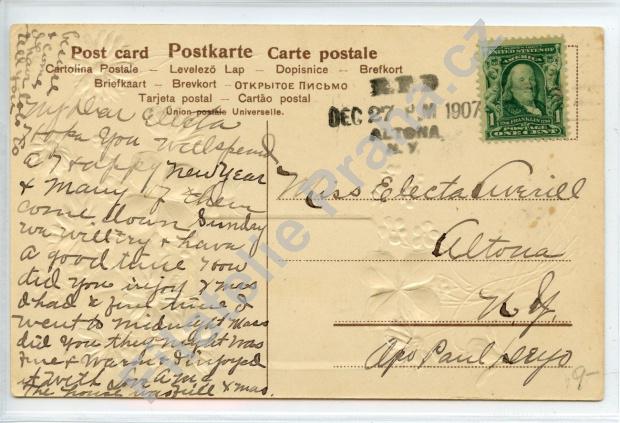 Post card Postkarte Carte postale
Cartolina Postale - Levelező Lap - Dopisnice - Brefkort
Briefkaart - Brevkort - ОТКРЫТОЕ ПИСЬМО
Tarjeta postal - Cartão postal
Union postale Universelle.
R.F.D
DEC 27 PM 1907
ALTONA
N.Y.
UNITED STATES OF AMERICA
1 1
POSTAGE ONE CENT
My Dear Electa
Hope you will spend
a Happy New Year
& Many of them
come down Sunday
we will try & have
a good time
did you injoy Xmas
I had a fine time I
went to Midnight Mass
did you the night was
fine & warm & I injoyed
it with
the house was full Xmas.
Miss Electa Averill
Altona
N. Y.
Paul
9-
Filatelie Praha.cz